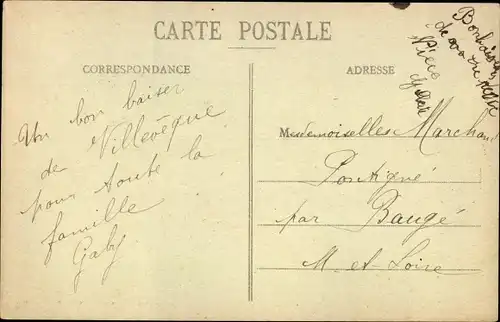 CARTE POSTALE
CORRESPONDANCE
ADRESSE
Un bon baiser
de Villevêque
pour toute la
famille
Gaby
Mesdemoiselles Marchand
Pontigné
par Baugé
M-et-Loire
de votre petite